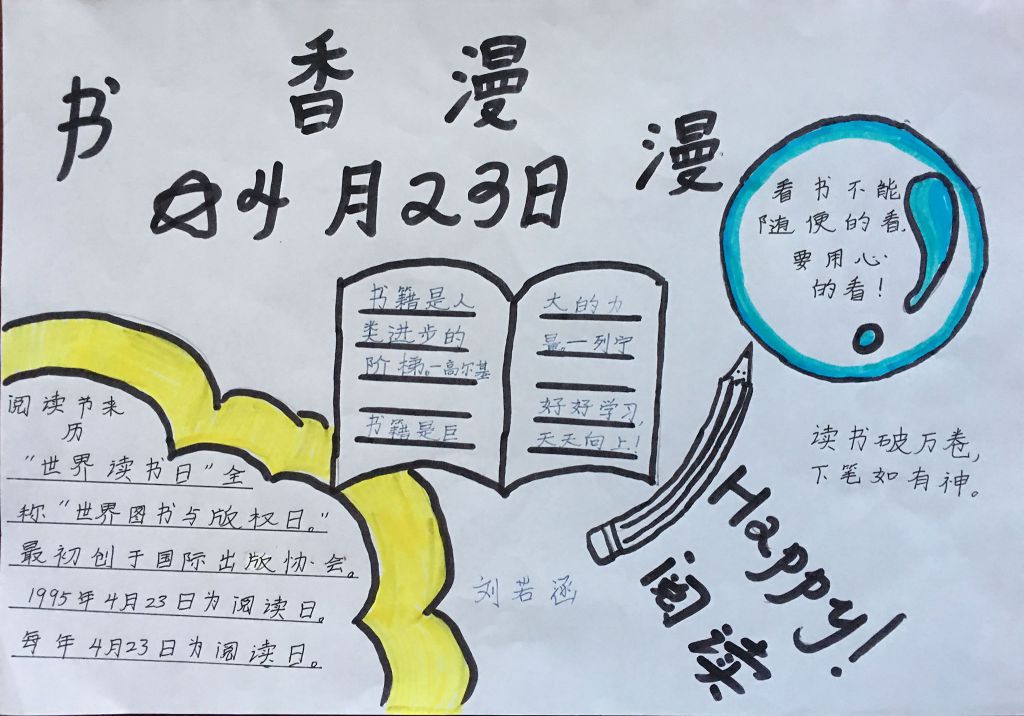 书香漫漫
04月23日
看书不能
随便的看,
要用心
的看!
书籍是人
类进步的
阶梯。一高尔基
书籍是巨
大的力
量。一列宁
好好学习,
天天向上!
阅读书来
历
“世界读书日”全
称“世界图书与版权日。”
最初创于国际出版协会。
1995年4月23日为阅读日。
每年4月23日为阅读日。
读书破万卷,
下笔如有神。
Happy!
阅读
刘若涵